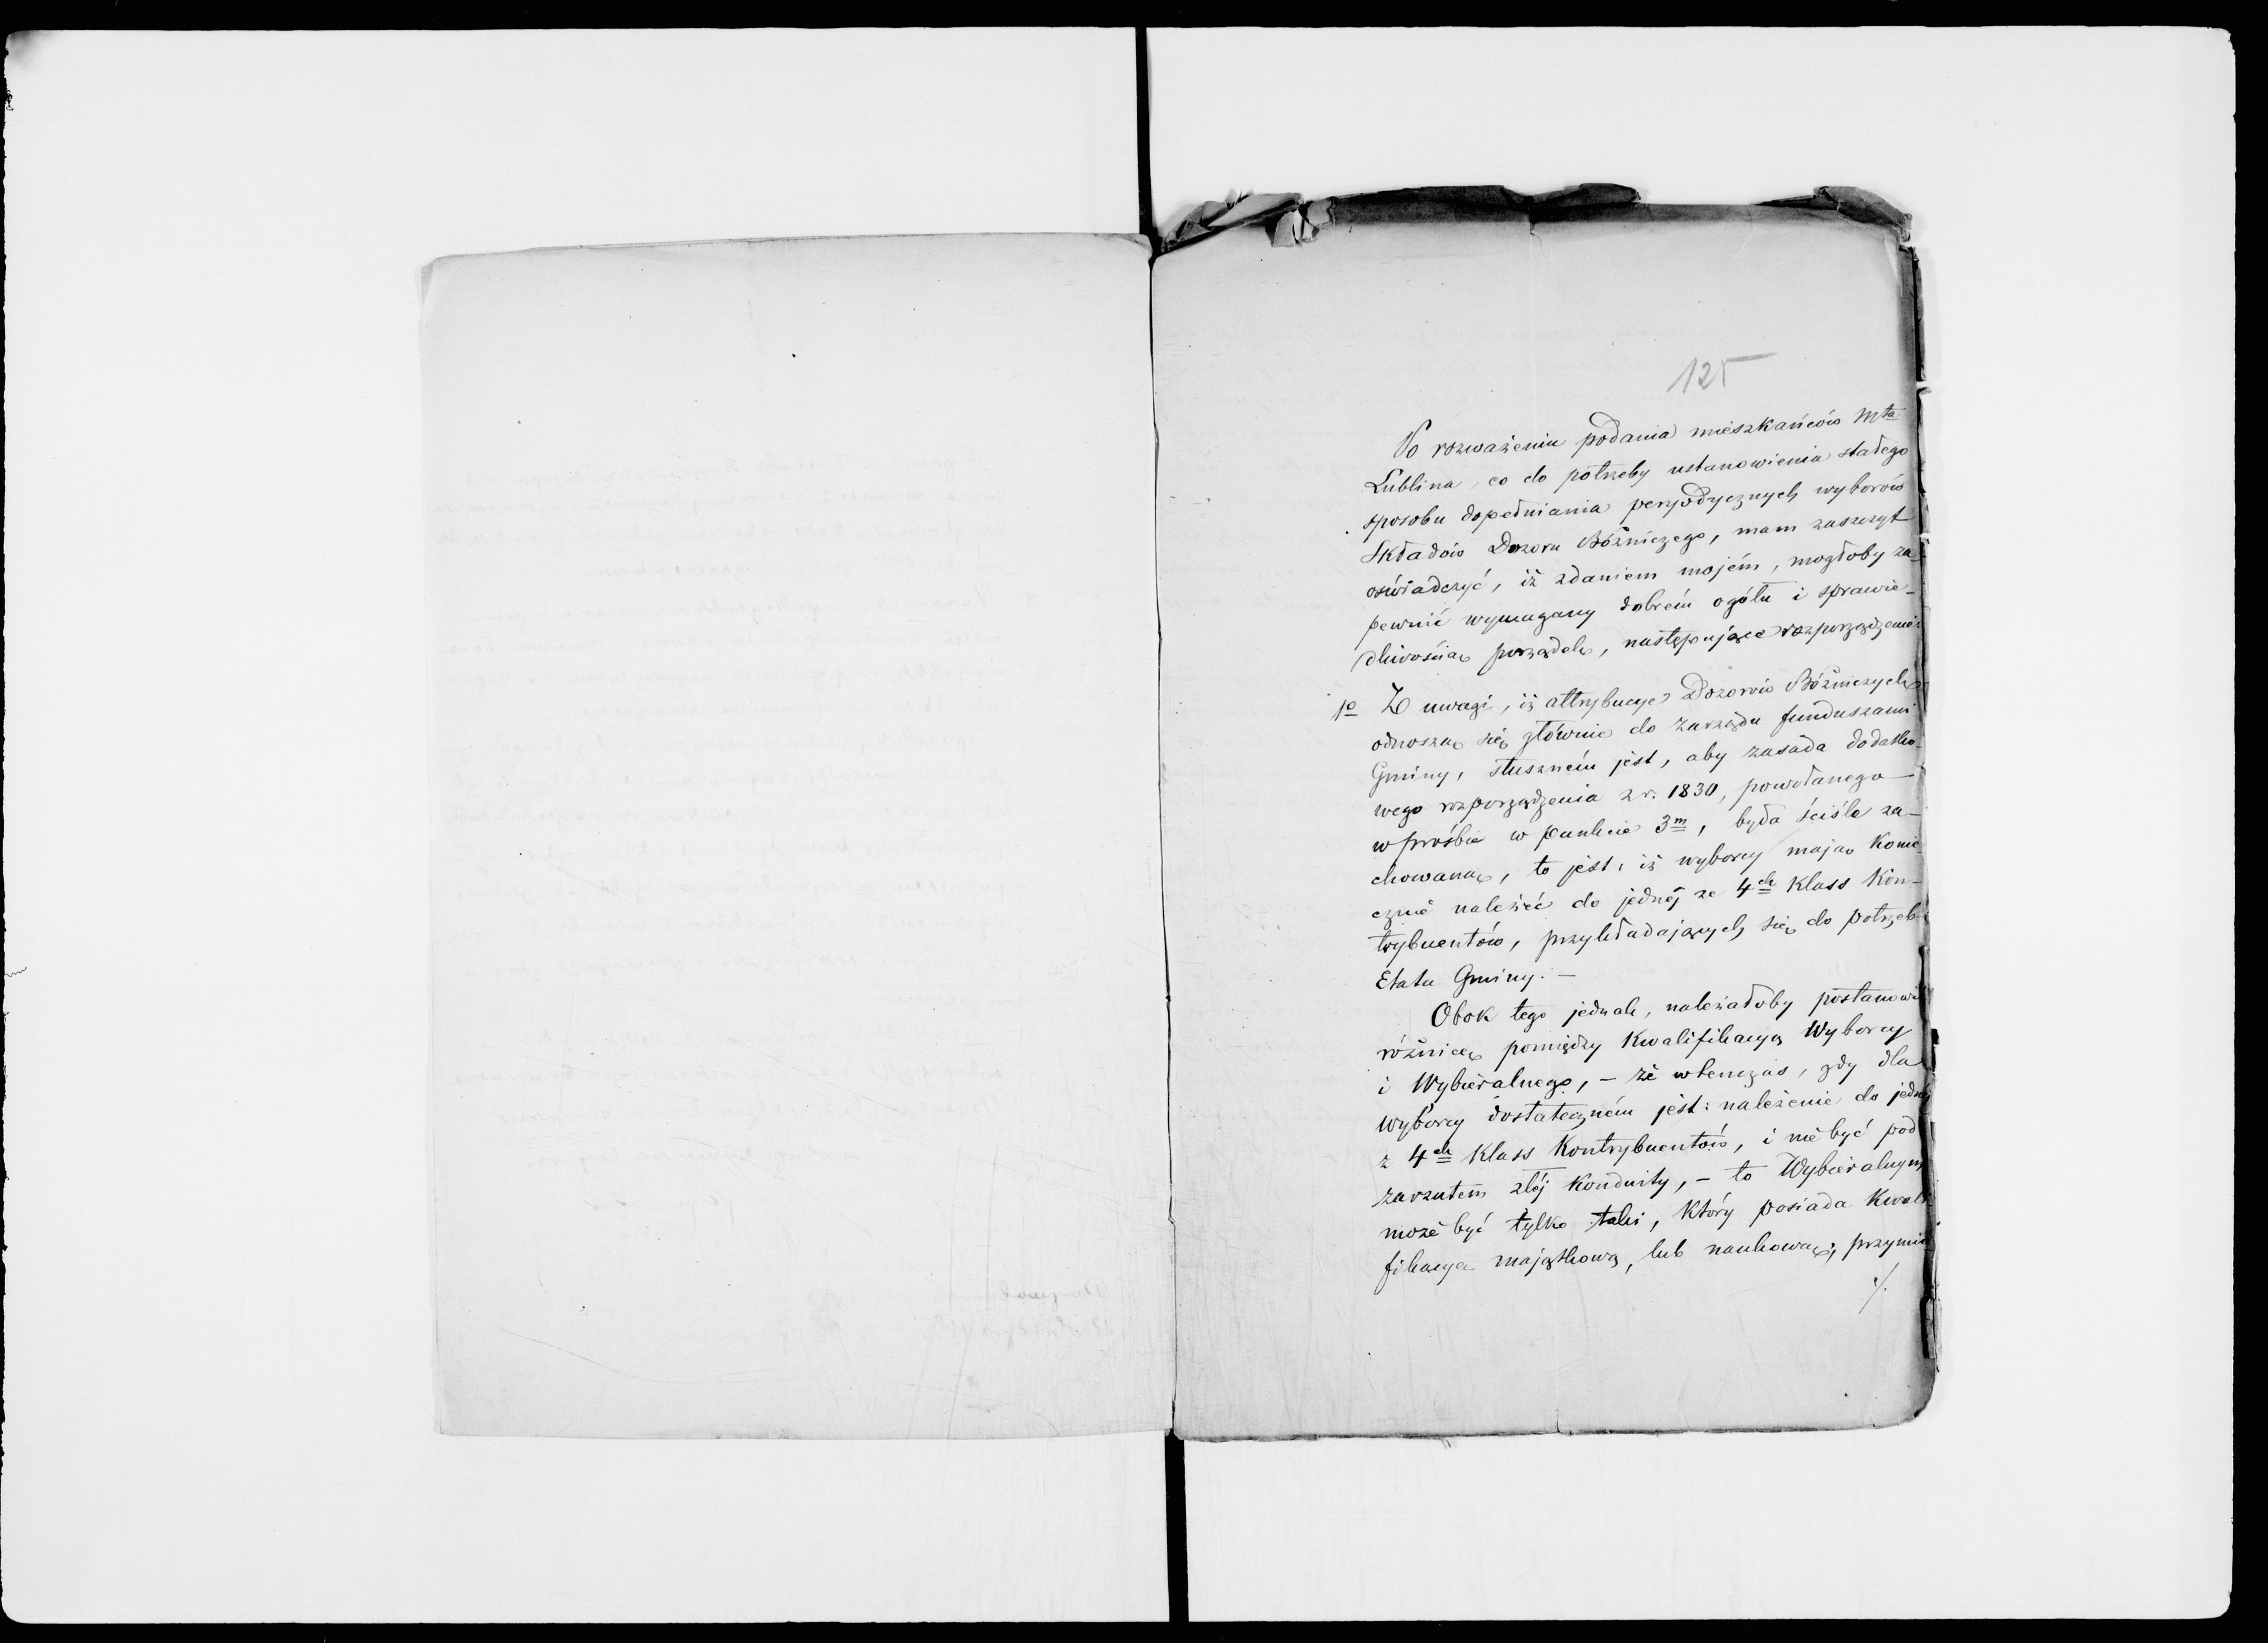 125
Po rozważeniu podania mieszkańców Mta
Lublina, co do potrzeby ustanowienia stałego
sposobu dopełniania peryodycznych wyborów
Składów Dozoru Bóżniczego, mam zaszczyt
oświadczyć, iż zdaniem mojém, mogłoby za-
pewnić wymagany dobrem ogółu i sprawie-
dliwością porządek, następujące rozporządzenie:
1o Z uwagi, iż attrybucye Dozorów Bóżniczych
odnoszą się głównie do Zarządu funduszami
Gminy, słuszném jest, aby zasada dodatko-
wego rozporządzenia z r. 1830, powołanego
w prośbie w punkcie 3m, była ściśle za-
chowaną, to jest: iż wyborcy mają Konie-
cznie należéć do jednéj ze 4ch Klass Kon-
trybuentów, przykładających się do potrzeb
Etatu Gminy. —
Obok tego jednak, należałoby postanowi
różnicę pomiędzy Kwalifikacyą Wyborcy
i Wybieralnego, — że wtenczas, gdy dla
Wyborcy dostateczném jest: należenie do jednéj
z 4ch Klass Kontrybuentów, i nie być pod
zarzutem złéj Konduity, — to Wybieralnym
może być tylko taki, Który posiada Kwali
fikacya majątkową, lub naukową; przymio
./.